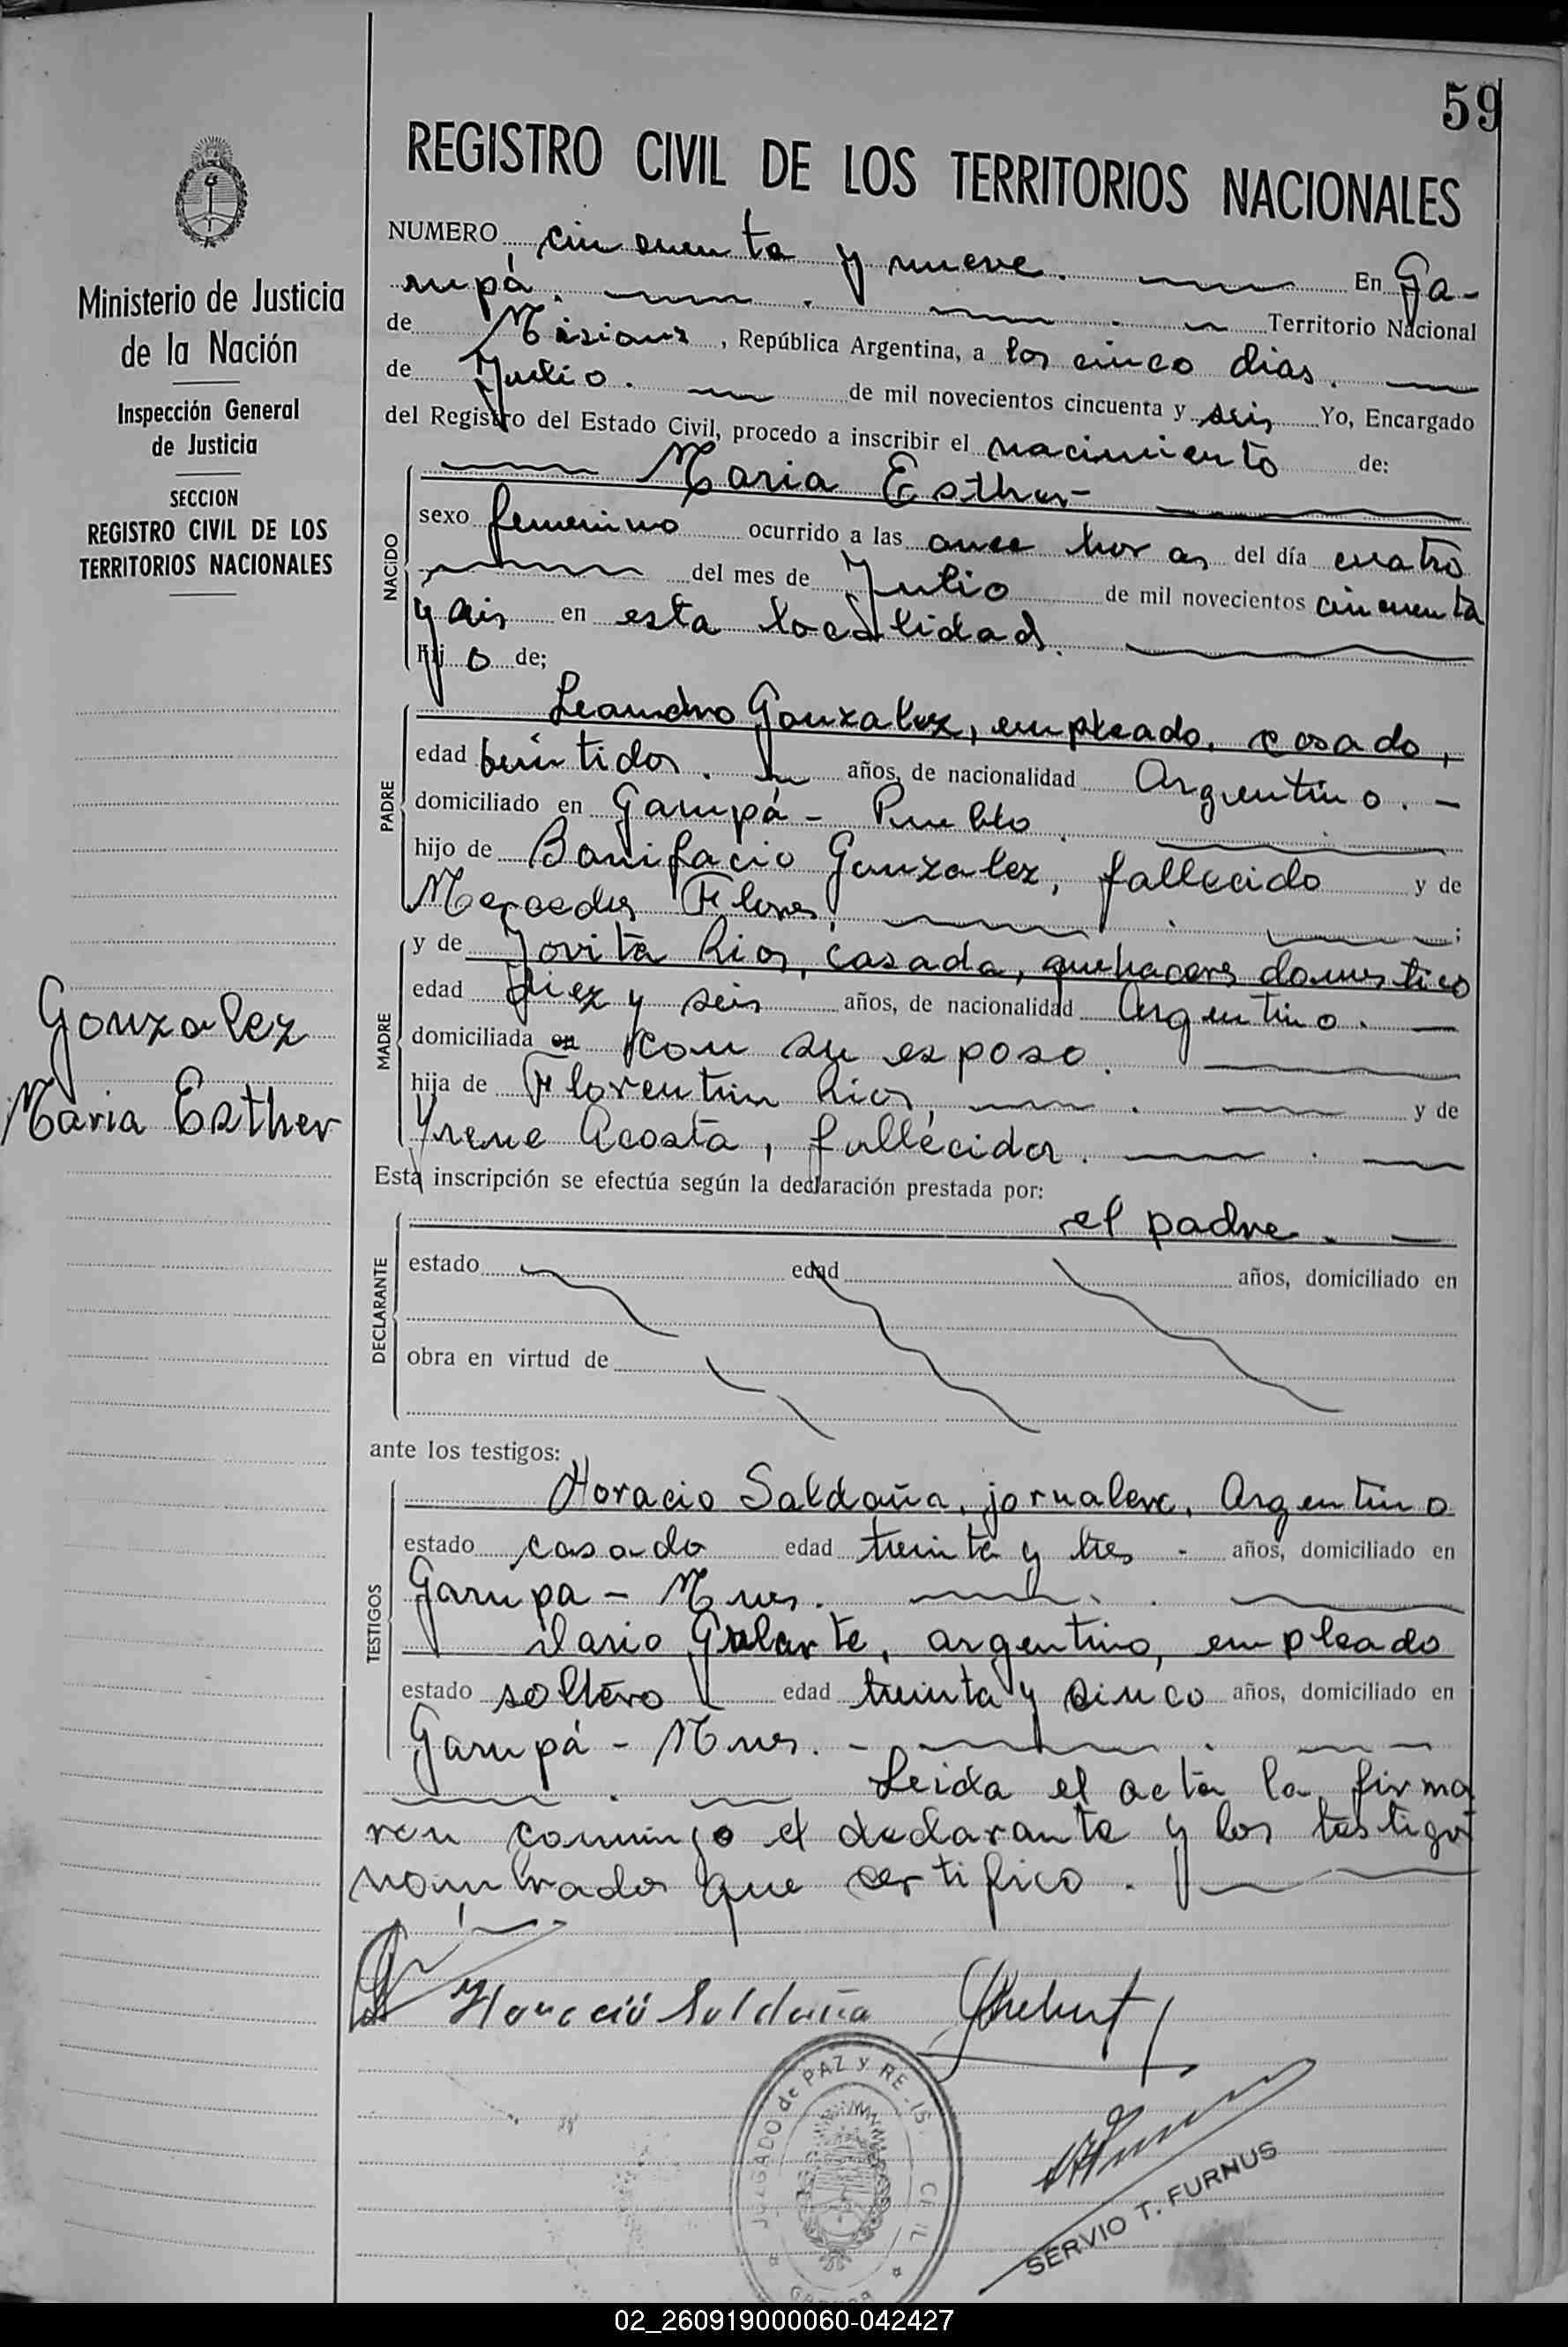 59
REGISTRO CIVIL DE LOS TERRITORIOS NACIONALES
Ministerio de Justicia
de la Nación
Inspección General
de Justicia
SECCION
REGISTRO CIVIL DE LOS
TERRITORIOS NACIONALES
Gonzalez
Maria Esther
NUMERO cincuenta y nueve. En Ga-
rupá. Territorio Nacional
de Misiones, República Argentina, a los cinco dias.
de Julio. de mil novecientos cincuenta y seis Yo, Encargado
del Registro del Estado Civil, procedo a inscribir el nacimiento de:
NACIDO
Maria Esther-
sexo femenino ocurrido a las once horas del día cuatro
del mes de Julio de mil novecientos cincuenta
y seis en esta localidad.
hijo de;
PADRE
Leandro Gonzalez, empleado, casado,
edad beintidos. años, de nacionalidad Argentino. -
domiciliado en Garupá - Pueblo
hijo de Bonifacio Gonzalez, fallecido y de
Mercedes Flores. ;
MADRE
y de Jovita Rios, casada, quehaceres domestico
edad diez y seis años, de nacionalidad Argentino. -
domiciliada en con su esposo.
hija de Florentin Rios, y de
Yrene Acosta, fallécidos.
Esta inscripción se efectúa según la declaración prestada por:
DECLARANTE
el padre. -
estado edad años, domiciliado en
obra en virtud de
ante los testigos:
TESTIGOS
Horacio Saldaña, jornalero, Argentino
estado casado edad treinta y tres - años, domiciliado en
Garupa - Mnes.
Ilario Galarte, argentino, empleado
estado soltero edad treinta y cinco años, domiciliado en
Garupá - Mnes. -
Leida el acta la firma
ron conmigo el declarante y los testigos
nombrados que certifico.
Horacio Saldaña
JUZGADO de PAZ y REGIS. CIVIL
GARUPA
SERVIO T. FURNUS
02_260919000060-042427